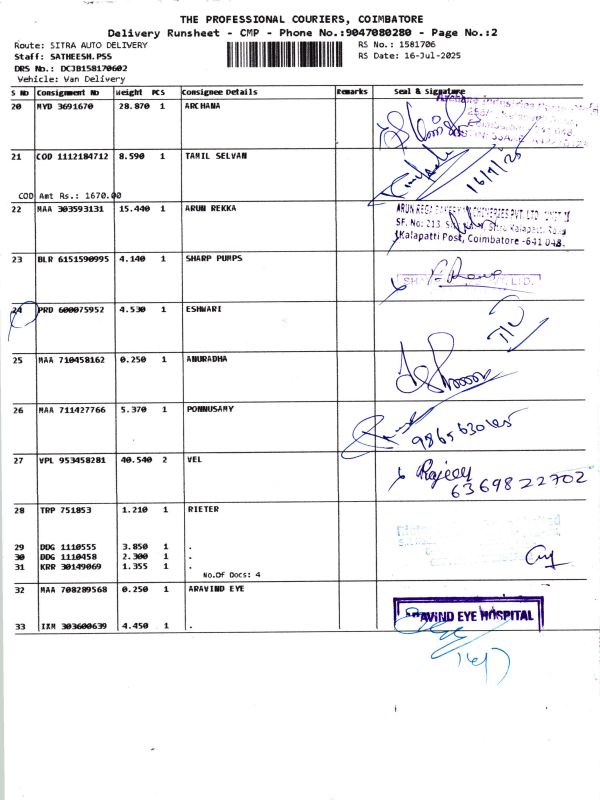 THE PROFESSIONAL COURIERS, COIMBATORE
Delivery Runsheet - CMP - Phone No.:9047080280 - Page No.:2
Route: SITRA AUTO DELIVERY RS No.: 1581706
Staff: SATHEESH.PSS RS Date: 16-Jul-2025
DRS No.: DCJB158170602
Vehicle: Van Delivery
S No Consignment No Weight PCS Consignee Details Remarks Seal & Signature
20 MYD 3691670 28.870 1 ARCHANA
21 COD 1112184712 8.590 1 TAMIL SELVAN
16/7/25
COD Amt Rs.: 1670.00
22 MAA 303593131 15.440 1 ARUN REKKA
SF. No: 213
Kalapatti Post, Coimbatore -641 048.
23 BLR 6151590995 4.140 1 SHARP PUMPS
24 PRD 600075952 4.530 1 ESHWARI
25 MAA 710458162 0.250 1 ANURADHA
26 MAA 711427766 5.370 1 PONNUSAMY
27 VPL 953458281 40.540 2 VEL
6369822702
28 TRP 751853 1.210 1 RIETER
29 DDG 1110555 3.850 1 .
30 DDG 1110458 2.300 1 .
31 KRR 30149069 1.355 1 .
No.Of Docs: 4
32 MAA 708289568 0.250 1 ARAVIND EYE
ARAVIND EYE HOSPITAL
33 IXM 303600639 4.450 1 .
16/7